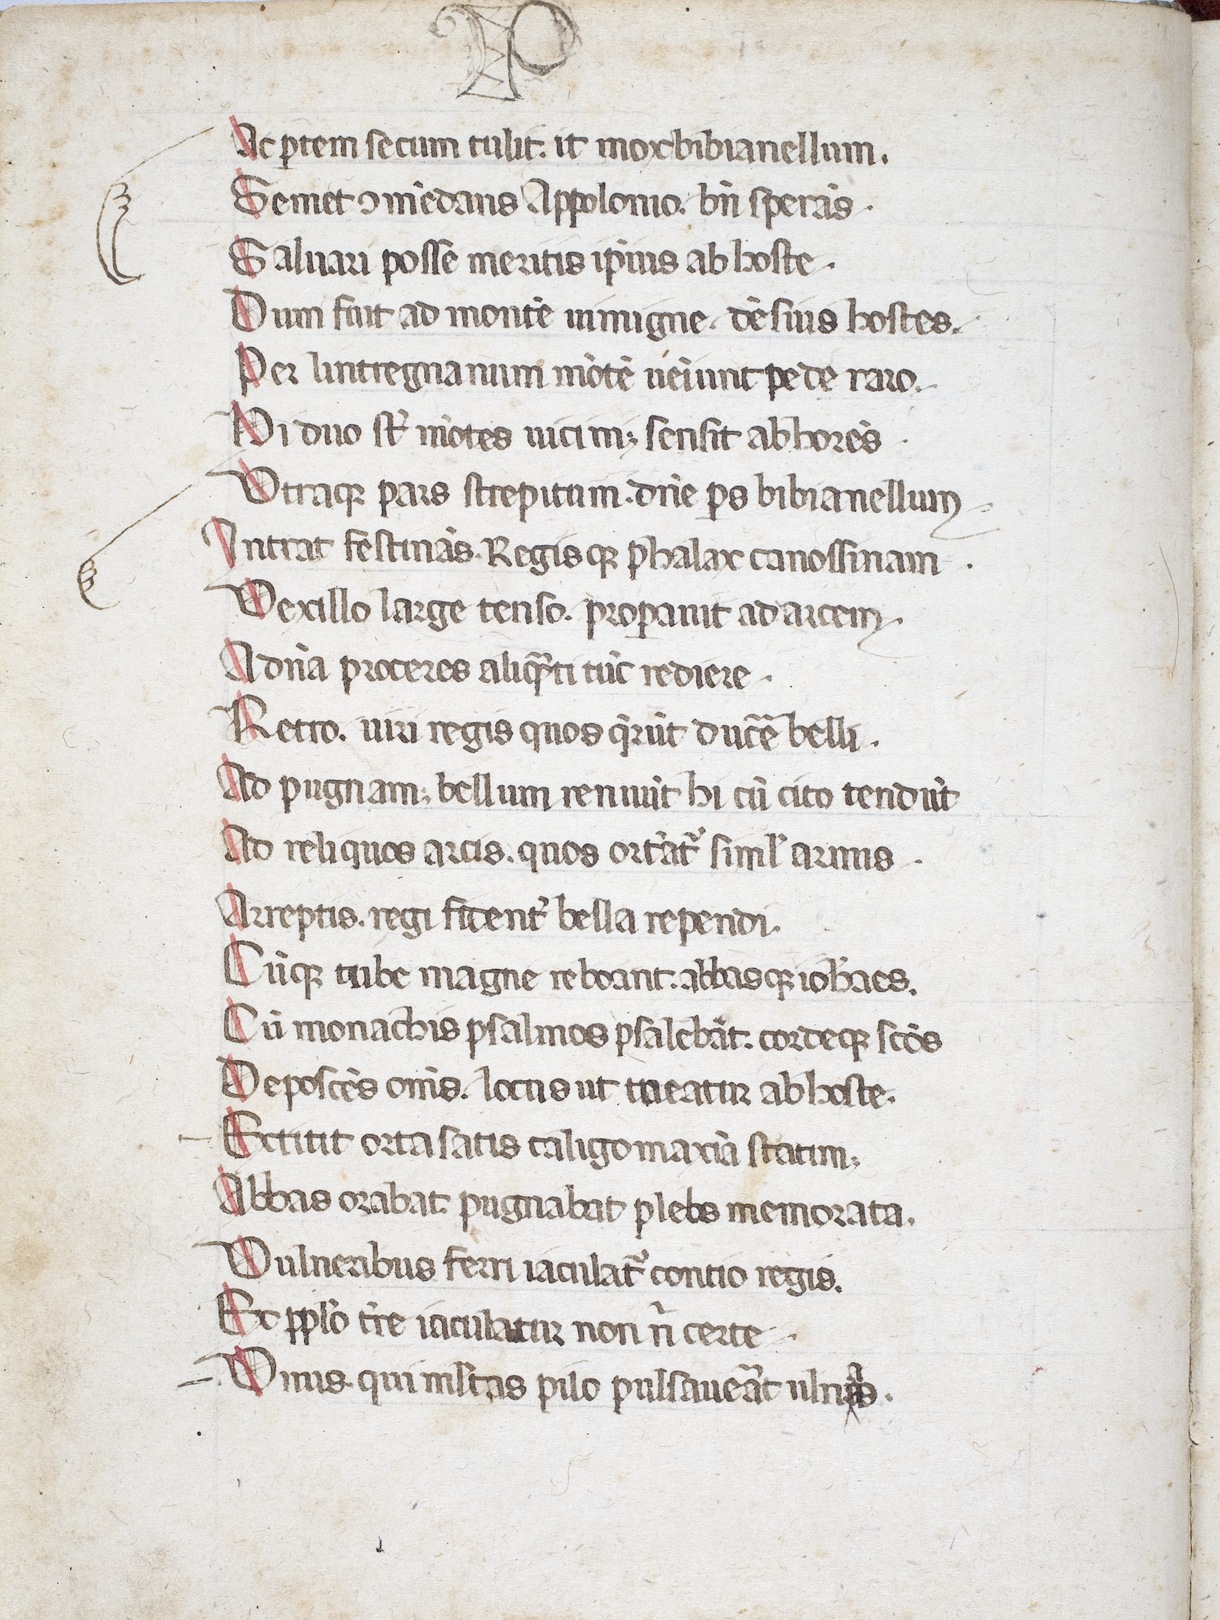 Ac ꝑtem secum tulit. it mox bibianellum.
Semet ɔmēdans Appolonio. bn̄ sperās.
Saluari posse meritis ip̄ius ab hoste.
Dum fuit ad montē uimigne. dēsiuis hostes.
Per lintregnanum mōtē ueiunt pede raro.
Hi duo st̄ mōtes uicini; sensit abhorēs.
Vtraqꝫ pars strepitum. dn̄e ps bibianellum
Intrat festinās. Regisqꝫ phalax canossinam.
Vexillo large tenso. properauit ad arcem.
A dn̄a proceres aliquāti tūc rediere.
Retro. uiri regis quos q̄rūt ducē belli.
Ad pugnam; bellum renuūt hi cū cito tendūt
Ad reliquos arcis. quos ortāt᷑ simul armis.
Arreptis. regi fident᷑ bella rependi.
Cūqꝫ tube magne reboant. abbasqꝫ ioh̄aes.
Cū monachis psalmos psalebāt. cordeqꝫ scōs
Deposcēs om̄s. locus ut tueatur ab hoste.
Extitit orta satis caligo maxīa statim;
Abbas orabat. pugnabat plebs memorata.
Vulneribus ferri iaculat᷑ contio regis.
Ex pplō tr̄e iaculatur non n̄ certe.
Vnus. qui instas pilo pulsauerāt